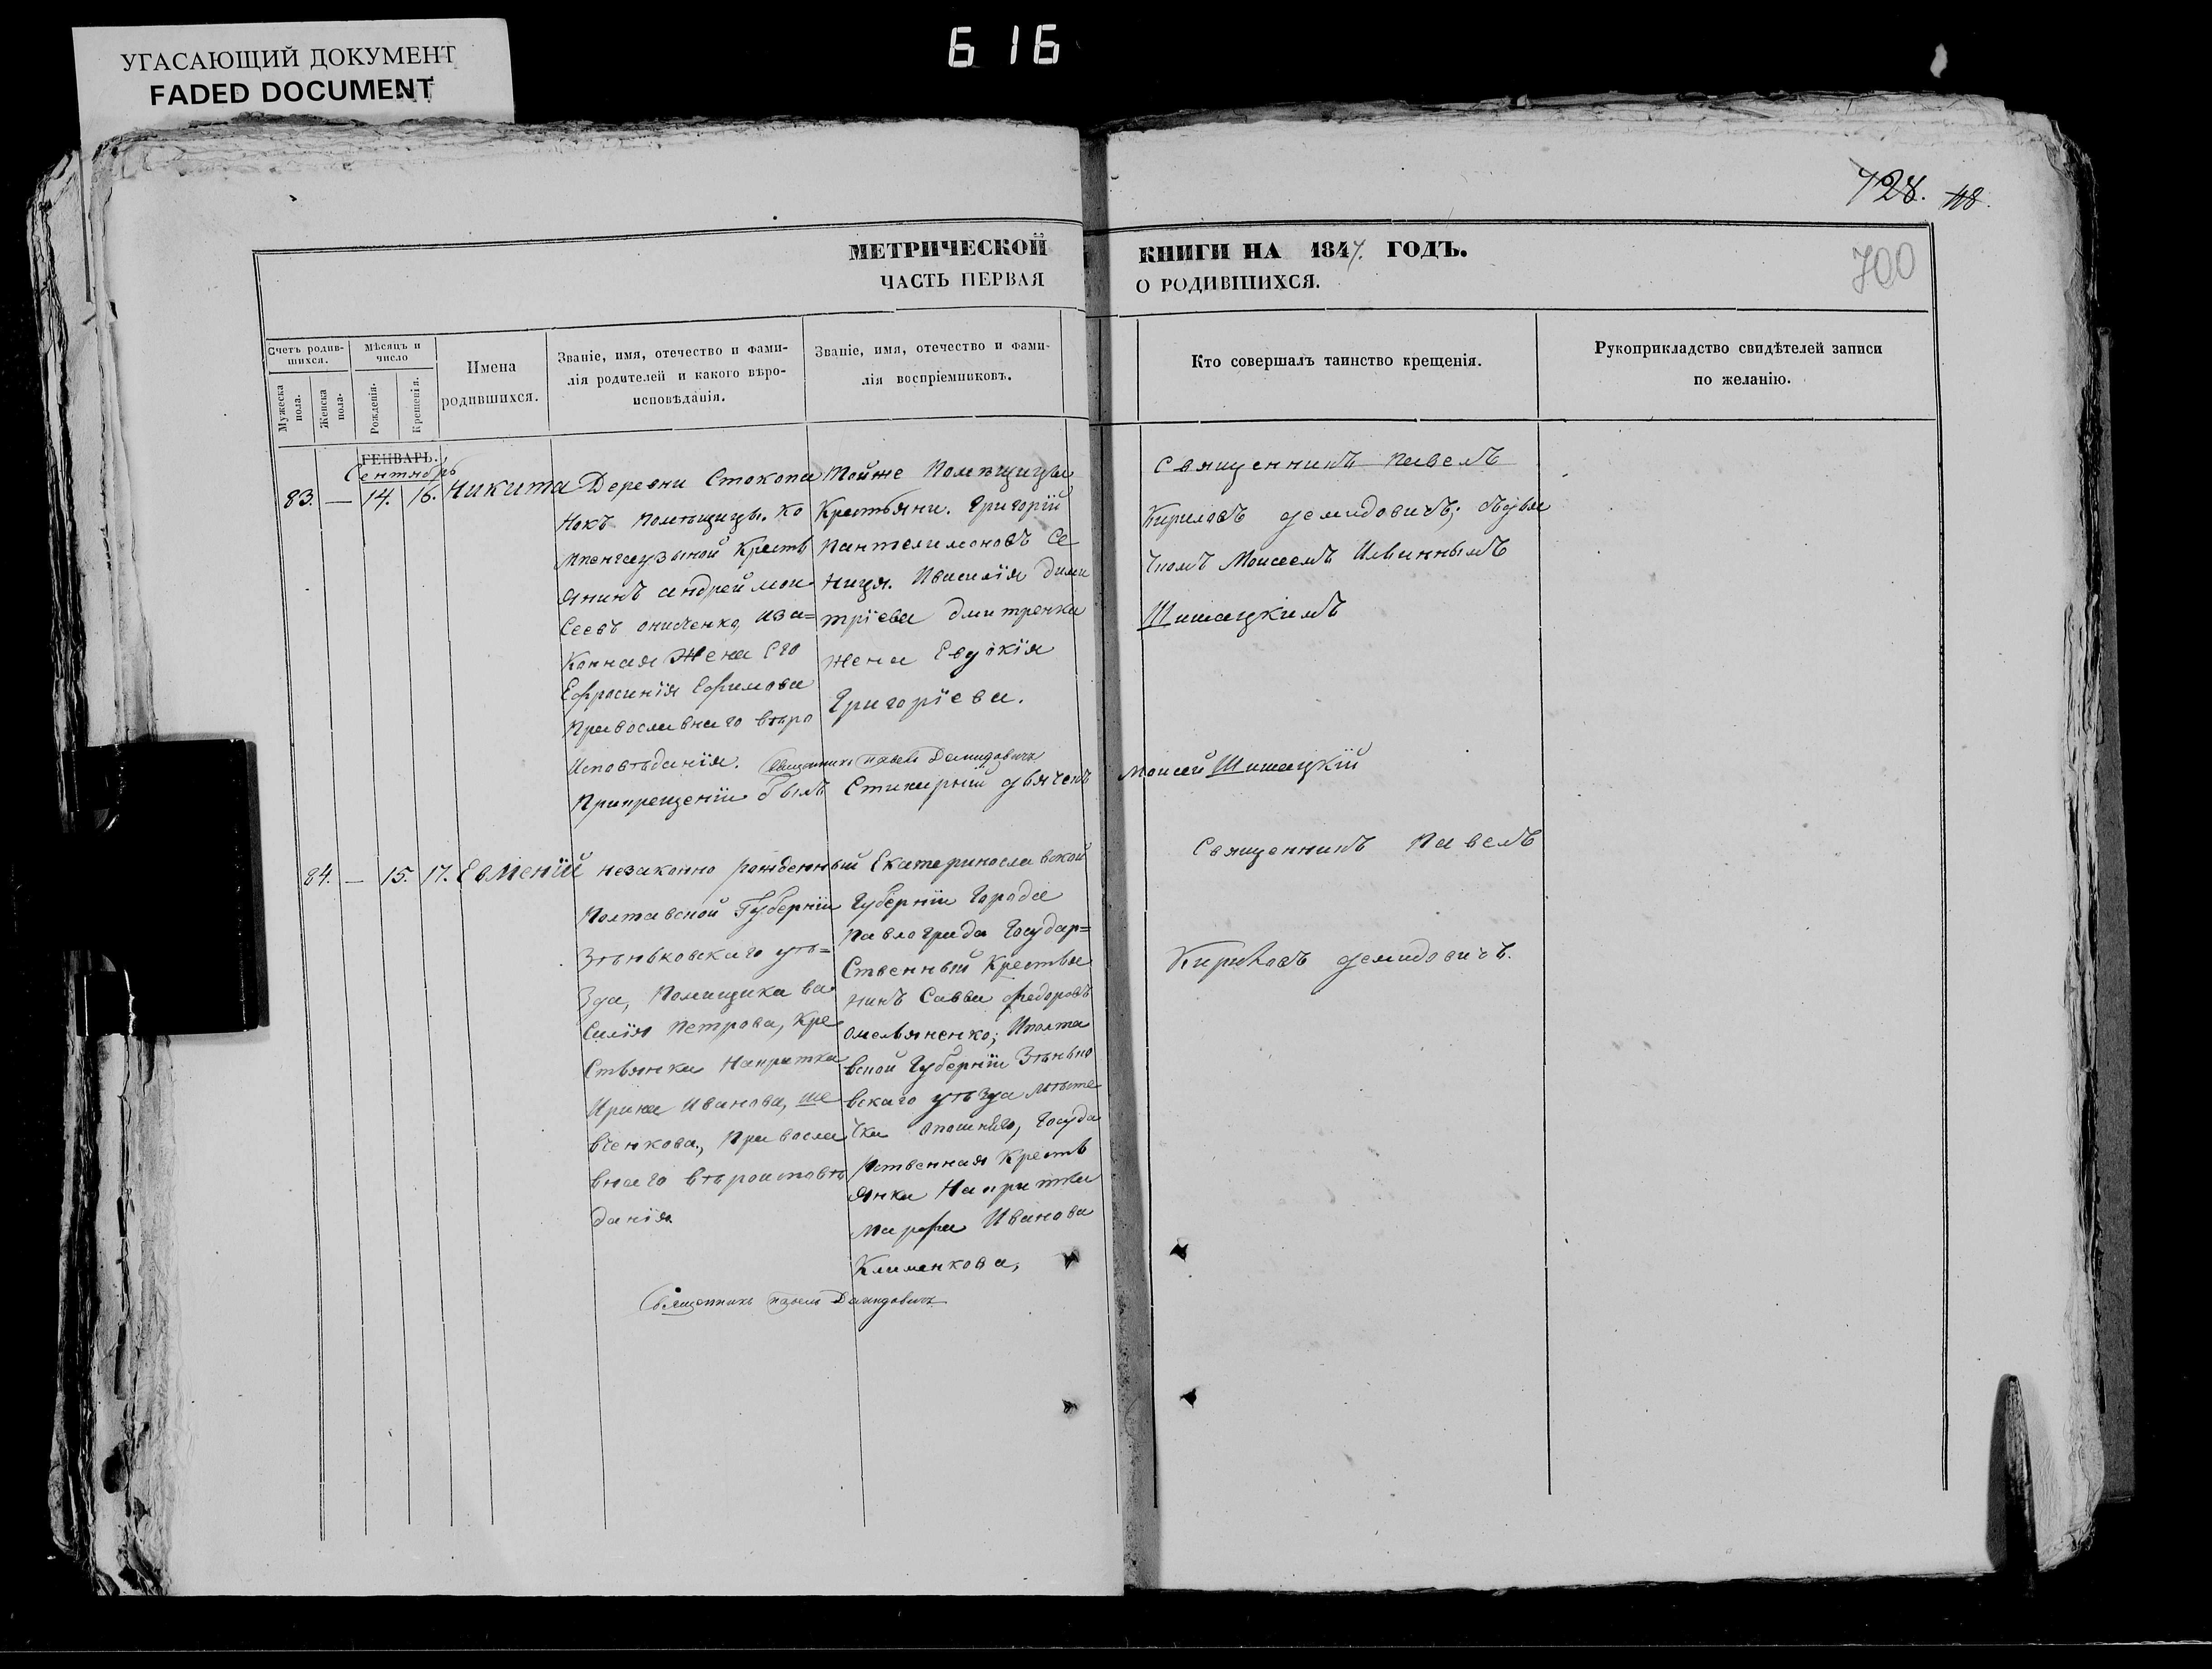 616
УГАСАЮЩИЙ ДОКУМЕНТ
FADED DOCUMENT
128. 118.
700
МЕТРИЧЕСКОЙ КНИГИ НА 1847. ГОДЪ.
ЧАСТЬ ПЕРВАЯ О РОДИВШИХСЯ.
Счетъ родив-
шихся.
Мужеска
пола.
Женска
пола.
Мѣсяцъ и
число
Рожденія.
Крещенія.
Имена
родившихся.
Званіе, имя, отечество и фами-
лія родителей и какого вѣро-
исповѣданія.
Званіе, имя, отечество и фами-
лія воспріемниковъ.
Кто совершалъ таинство крещенія.
Рукоприкладство свидѣтелей записи
по желанію.
ГЕНВАРЬ.
Сентябрь
83. — 14. 16. Никита
Деревни Стокопа
нокъ помѣщицы. Ко
Кресть
янинъ андрей мои
сеевъ онисченко, иза=
конная жена его
Ефросинія Ефимова
Православнаго вѣро
исповѣданія.
Тойже Помѣщицы
Крестьяни. Григорій
Пантелимоновъ Се
ница. Ивасилія дими
тріева дмитренка
жена Евдокія
Григоріева.
Священникъ Павелъ Демидовичъ
Прикрещеніи былъ Стихарный дьячекъ Моисей Шишацкій
Священникъ Павелъ
Кириловъ демидовичъ; сдья
чкомъ Моисеемъ Ильинымъ
Шишацкимъ
84. — 15. 17. Евменій
незаконно рожденный
Полтавской Губерніи
Зѣньковскаго уѣ=
зда, Помещика ва
силія Петрова, Кре
стьянки Напритка
Ирина Иванова, Ше
вченкова, Правосла
внаго вѣроисповѣ
данія
Екатеринославской
Губерніи Города
Павлограда Государ=
ственный Крестья
нинъ Савва федоровъ
омельяненко; Иполта
вской Губерніи Зѣнько
вскаго уѣзда Мѣсте
чка опошнего, Госуда
рственная Кресть
янка Напритка
Марфа Иванова
Клименкова,
Священникъ Павелъ Демидовичъ
Священникъ Павелъ
Кириловъ демидовичъ.